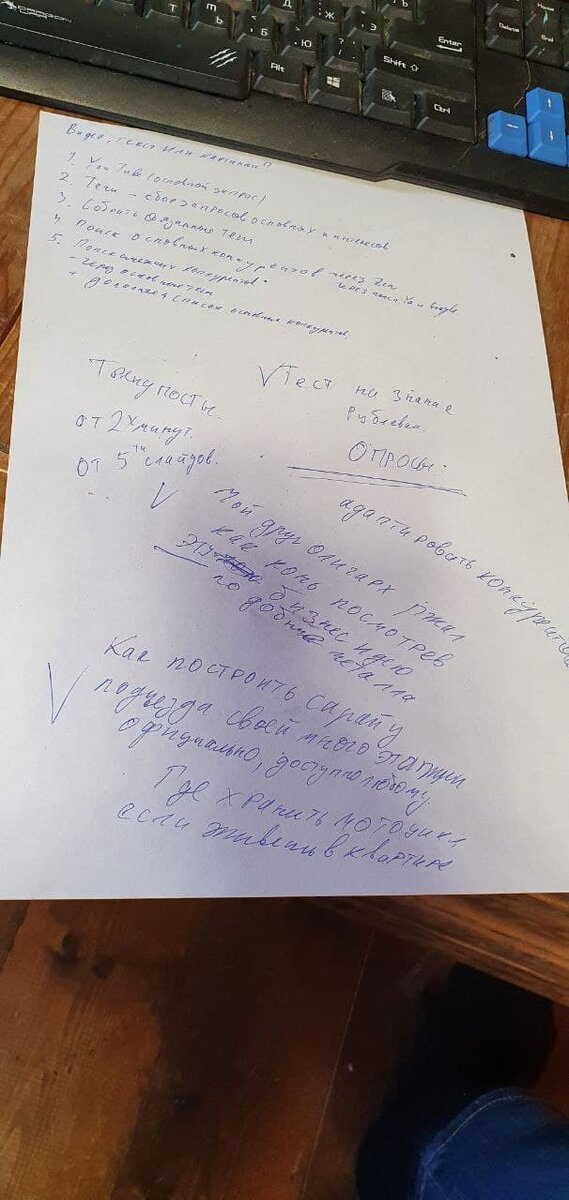 Alt
Shift
Enter
Ctrl
Delete
Home
End
Видео, текст или картинки?
1. You Tube (основной запрос)
2. Теги - сбор запросов основных и интересов
3. Собрать связанные теги
4. Поиск основных конкурентов через Zen
через поиск Ya и Google
5. Поиск смежных конкурентов
- через основные теги
+ дополняем список основных конкурентов.
Толкупосты.
от 2х минут.
от 5ти слайдов.
V Тест на знание
Рублевки.
ОПРОСЫ.
адаптировать конкурентов
V Мой друг олигарх ржал
как конь посмотрев
эту бизнес идею
по добыче металла
V Как построить сарай у
подъезда своей много этажки
официально, доступно любому.
Где хранить мотоцикл
если живешь в квартире